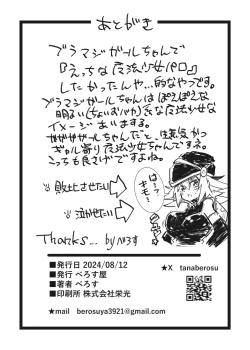 あとがき
ブラマジガールちゃんで
『えっちな魔法少女パロ』
したかったんや…的なやつです。
ブラマジガールちゃんはぽえぽえな
明るい(ちょいおバカ)系な魔法少女な
イメージあいまする。
ガガガガールちゃんだと、生意気かつ
ギャル寄り魔法少女ちゃんですネ。
こっちも良さげですよね。
敗北させたい
泣かせたい
は?
キモ!
Thanks... by べろす
■発行日 2024/08/12
■発行 べろす屋
■著者 べろす
■印刷所 株式会社栄光
★X tanaberosu
★mail berosuya3921@gmail.com